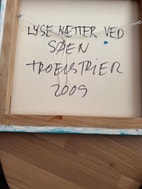 LYSE NÆTTER VED
SØEN
TROELSTRIER
2009